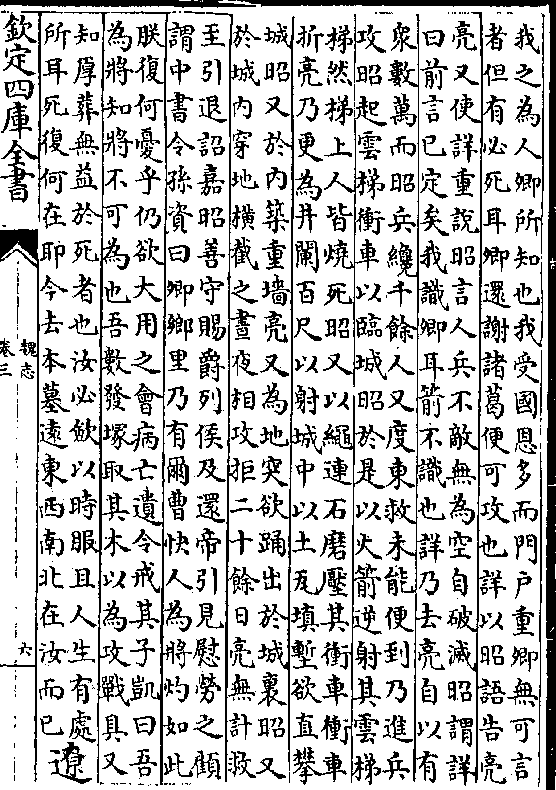 我之為人卿所知也我受國恩多而門戶重卿無可言
者但有必死耳卿還謝諸葛便可攻也詳以昭語告亮
亮又使詳重說昭言人兵不敵無為空自破滅昭謂詳
曰前言已定矣我識卿耳箭不識也詳乃去亮自以有
衆數萬而昭兵纔千餘人又度東救未能便到乃進兵
攻昭起雲梯衝車以臨城昭於是以火箭逆射其雲梯
梯然梯上人皆燒死昭又以繩連石磨壓其衝車衝車
折亮乃更為井闌百尺以射城中以土瓦填塹欲直攀
城昭又於內築重墻亮又為地突欲踊出於城裏昭又
於城內穿地橫截之晝夜相攻拒二十餘日亮無計救
至引退詔嘉昭善守賜爵列侯及還帝引見慰勞之顧
謂中書令孫資曰卿鄉里乃有爾曹快人為將灼如此
朕復何憂乎仍欲大用之會病亡遺令戒其子凱曰吾
為將知將不可為也吾數發冢取其木以為攻戰具又
知厚葬無益於死者也汝必歛以時服且人生有處
所耳死復何在耶今去本墓遠東西南北在汝而已 遼
欽定四庫全書
魏志
卷三
六